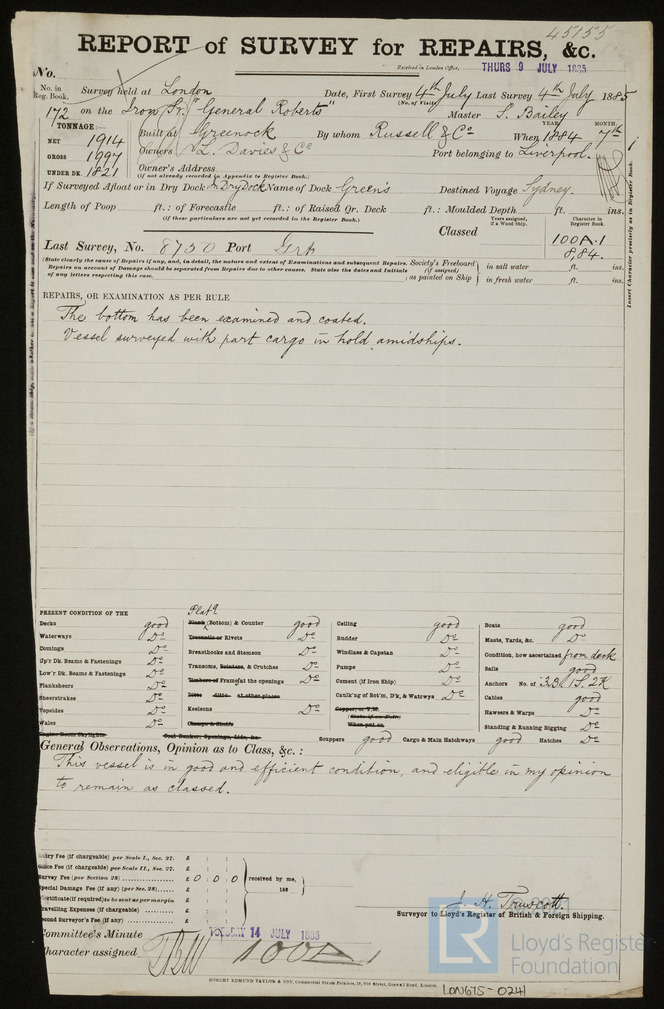 45155
REPORT of SURVEY for REPAIRS, &c.
Received in London Office, THURS 9 JULY 1885
No.
No. in Reg. Book. Survey held at London Date, First Survey 4th July Last Survey 4th July 1885
(No. of Visits)
172 on the Iron Sr. "General Roberts" Master S. Bailey
TONNAGE:— YEAR. MONTH.
NET 1914 Built at Greenock By whom Russell & Co When 1884 7th
GROSS 1997 Owners L. Davies & Co Port belonging to Liverpool.
UNDER DK. 1821 Owner's Address
(if not already recorded in Appendix to Register Book.)
If Surveyed Afloat or in Dry Dock In Dry Dock Name of Dock Green's Destined Voyage Sydney.
Length of Poop ft.: of Forecastle ft.: of Raised Qr. Deck ft.: Moulded Depth ft. ins.
(if these particulars are not yet recorded in the Register Book.)
Years assigned, if a Wood Ship. Character in Register Book.
Classed 100A.1
8,84.
Last Survey, No. 8750 Port Grk
(State clearly the cause of Repairs if any, and, in detail, the nature and extent of Examinations and subsequent Repairs.
Repairs on account of Damage should be separated from Repairs due to other causes. State also the dates and Initials
of any letters respecting this case.
Society's Freeboard (if assigned) as painted on Ship in salt water ft. ins.
in fresh water ft. ins.
Insert Character precisely as in Register Book.
REPAIRS, OR EXAMINATION AS PER RULE
The bottom has been examined and coated.
Vessel surveyed with part cargo in hold amidships.
PRESENT CONDITION OF THE
Decks good
Waterways Do
Comings Do
Up'r Dk. Beams & Fastenings Do
Low'r Dk. Beams & Fastenings Do
Planksheers Do
Sheerstrakes Do
Topsides Do
Wales Do
Engine Room Skylights
Platg
Plank (Bottom) & Counter good
Treenails or Rivets Do
Breasthooks and Stemson Do
Transoms, Pointers, & Crutches Do
Timbers of Frame at the openings Do
Ditto ditto at other places
Keelsons Do
Clamps & Shelfs
Coal Bunker, Openings, Lids, &c.
Ceiling good
Rudder Do
Windlass & Capstan Do
Pumps Do
Cement (if Iron Ship) Do
Caulk'ng of Bot'm, D'k, & Watrwys Do
Copper, or Y.M.
(State if on Felt)
When put on
Scuppers good Cargo & Main Hatchways good Hatches Do
Boats good
Masts, Yards, &c. Do
Condition, how ascertained from deck
Sails good
Anchors No. of 3B. 1S. 2K
Cables good
Hawsers & Warps Do
Standing & Running Rigging Do
General Observations, Opinion as to Class, &c.:
This vessel is in good and efficient condition, and eligible in my opinion
to remain as classed.
Entry Fee (if chargeable) per Scale I., Sec. 27. £ : :
Office Fee (if chargeable) per Scale II., Sec. 27. £ : :
Survey Fee (per Section 28) £ 0 : 0 : 0 received by me,
Special Damage Fee (if any) (per Sec. 28) £ : : 188
Certificate (if required) to be sent as per margin
Travelling Expenses (if chargeable) £ : :
Second Surveyor's Fee (if any) £ : :
J. H. Truscott.
Surveyor to Lloyd's Register of British & Foreign Shipping.
Committee's Minute TUESDAY 14 JULY 1885
Character assigned 100A1
ROBERT EDMUND TAYLOR & SON,
LR Lloyd's Register
Foundation
LON675-0241